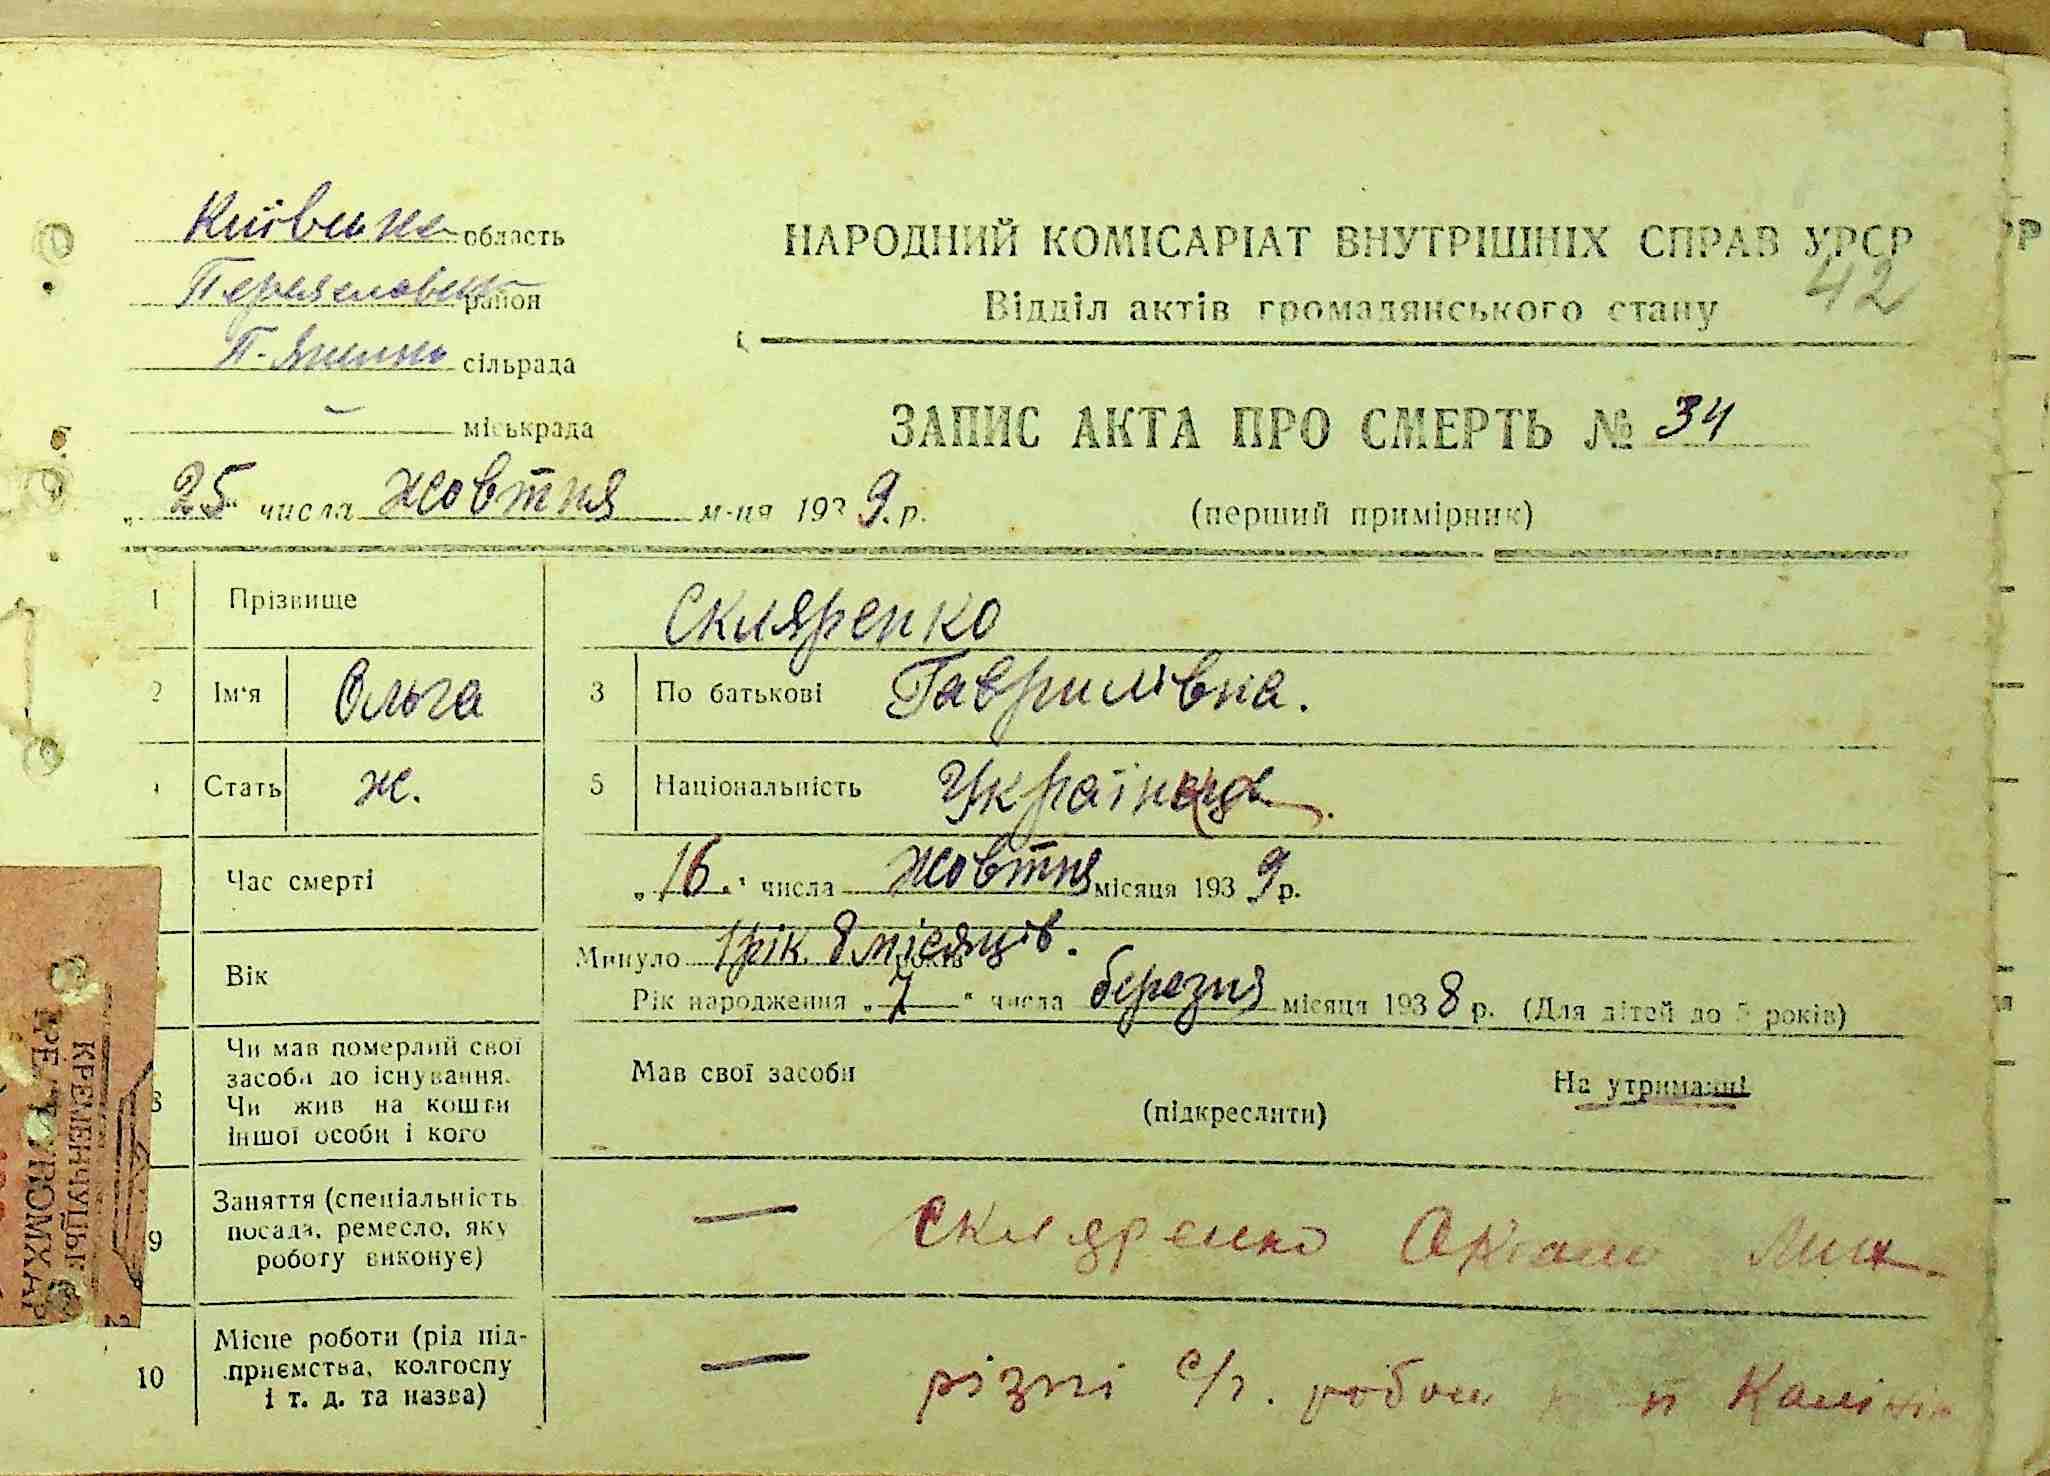 Київська область
Переяславськ район
П-Яненко сільрада
— міськрада
НАРОДНИЙ КОМІСАРІАТ ВНУТРІШНІХ СПРАВ УРСР
42
Відділ актів громадянського стану
ЗАПИС АКТА ПРО СМЕРТЬ № 34
„25" числа жовтня м-ця 1939.р.
(перший примірник)
1 Прізвище Скляренко
2 Ім'я Ольга 3 По батькові Гаврилівна.
Стать ж. 5 Національність Українка.
Час смерті „16." числа жовтня місяця 1939 р.
Вік Минуло 1 рік 8 місяців. років
Рік народження „7" числа березня місяця 1938 р. (Для дітей до 5 років)
8 Чи мав померлий свої
засоби до існування.
Чи жив на кошти
іншої особи і кого
Мав свої засоби На утриманні
(підкреслити)
9 Заняття (спеціальність
посада, ремесло, яку
роботу виконує)
— Скляренко
10 Місце роботи (рід під-
приємства, колгоспу
і т. д. та назва)
— різні с/г. робот Калінін
КРЕМЕНЧУЦЬК